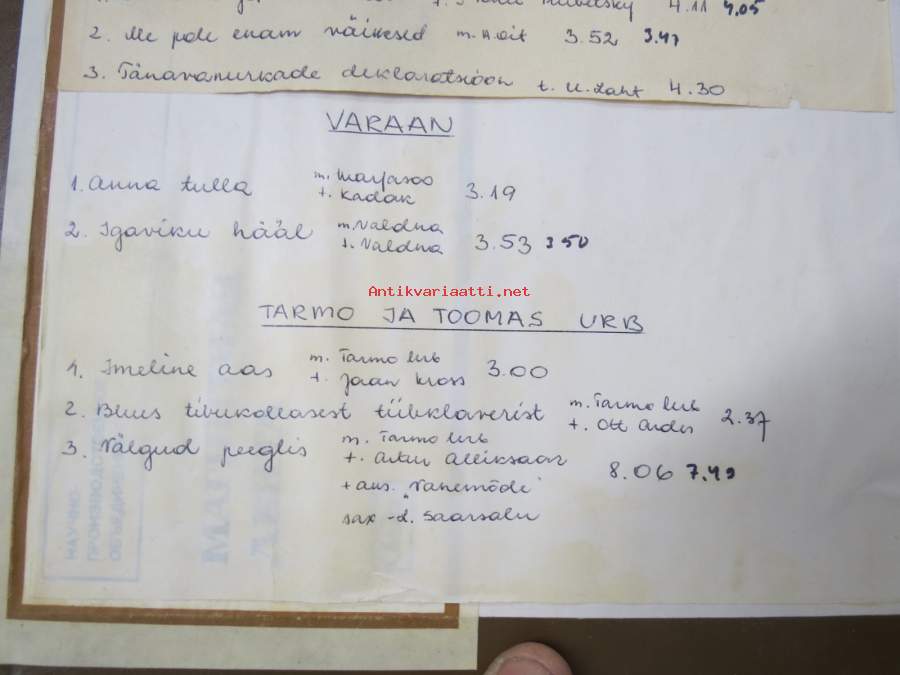 4.11 4.05
2. Me pole enam väikesed m. A. Oit 3.52 3.47
3. Tänavanurkade deklaratsioon t. U. Laht 4.30
VARAAN
1. Anna tulla m. Marjasoo 3.19
t. Kadak
2. Igaviku hääl m. Valdna 3.53 350
t. Valdna
Antikvariaatti.net
TARMO JA TOOMAS URB
1. Imeline aas m. Tarmo Urb 3.00
t. Jaan Kross
2. Bluus tibukollasest tiibklaverist m. Tarmo Urb 2.37
t. Ott Arder
3. Nälgud peeglis m. Tarmo Urb
t. Artur Alliksaar 8.06 7.49
+ ans. "Vanemõde"
sax - L. Saarsalu
НАУЧНО
ПРОИЗВОДСТВЕ
ОБЪЕДИНЕ
МАГ